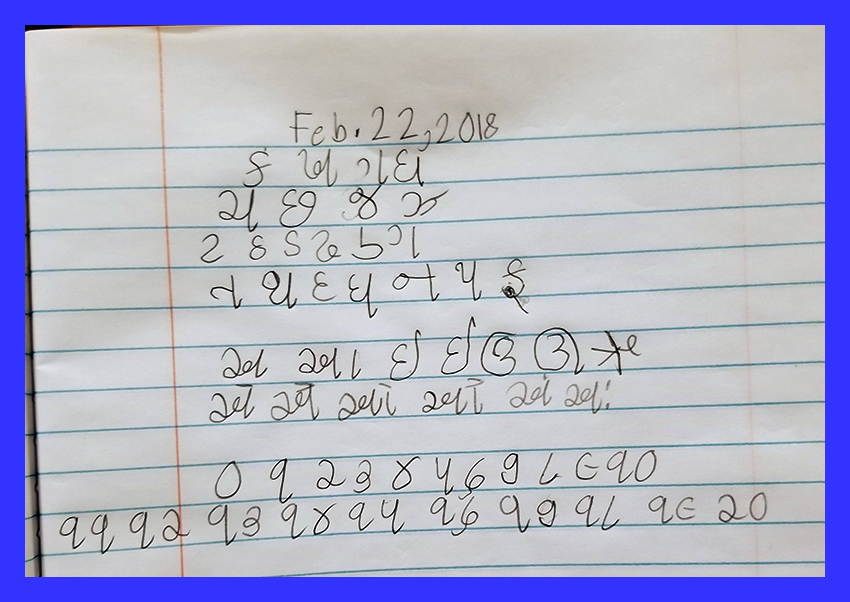 Feb. 22, 2018
ક ખ ગ ઘ
ચ છ જ ઝ
ટ ઠ ડ ઢ ણ
ત થ દ ધ ન પ ફ
અ આ ઇ ઈ ઉ ઊ ઋ
એ ઐ ઓ ઔ અં અઃ
૦ ૧ ૨ ૩ ૪ ૫ ૬ ૭ ૮ ૯ ૧૦
૧૧ ૧૨ ૧૩ ૧૪ ૧૫ ૧૬ ૧૭ ૧૮ ૧૯ ૨૦